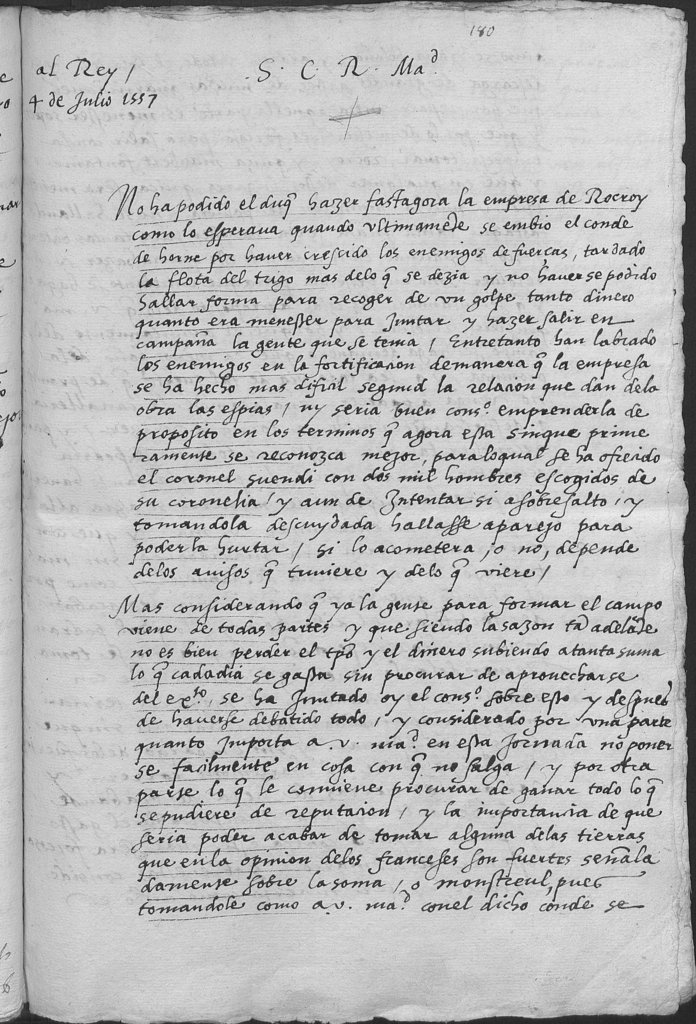 180
al Rey /
S. C. R. Mad.
4 de Julio 1557
No ha podido el duq̃ hazer fastagora la empresa de Rocroy
como lo esperava quando ultimamẽte se embio el conde
de horne por haver crescido los enemigos de fuerças, tardado
la flota del trigo mas delo q̃ se dezia y no haverse podido
hallar forma para recoger de un golpe tanto dinero
quanto era menester para Juntar y hazer salir en
campaña la gente que se tenia / Entretanto han labrado
los enemigos en la fortificacion demanera q̃ la empresa
se ha hecho mas dificil segund la relacion que dan dela
obra las espias / ny seria buen conso. emprenderla de
proposito en los terminos q̃ agora esta sinque prime
ramente se reconozca mejor, paraloqual se ha ofrecido
el coronel suendi con dos mil hombres escogidos de
su coronelia / y aun de Intentar si a sobresalto / y
tomandola descuydada hallasse aparejo para
poderla hurtar / si lo acometera, o no, depende
delos avisos q̃ tuviere y delo q̃ viere /
Mas considerando q̃ ya la gente para formar el campo
viene de todas partes y que siendo la sazon tã adelãte
no es bien perder el tpõ y el dinero subiendo atanta suma
lo q̃ cadadia se gasta sin procurar de aprovecharse
del exto, se ha Juntado oy el conso. sobre esto y despues
de haverse debatido todo, y considerado por una parte
quanto Importa a. v. mad. en esta Jornada no poner
se facilmente en cosa con q̃ no salga / y por otra
parte lo q̃ le conviene procurar de ganar todo lo q̃
se pudiere de reputacion / y la importancia de que
seria poder acabar de tomar alguna delas tierras
que en la opinion delos franceses son fuertes señala
damente sobre la soma / o monstreul, pues
tomandole como a. v. mad. con el dicho conde se